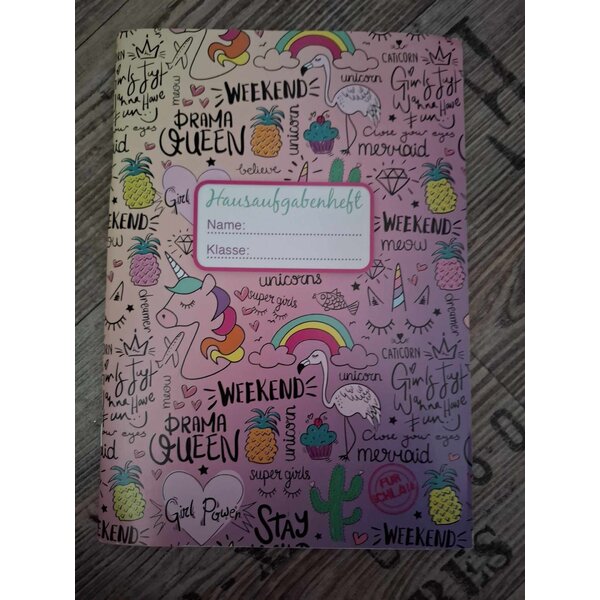 CATICORN
Girls Just
Wanna Have
Fun
meow
WEEKEND
unicorn
DRAMA
QUEEN
unicorn
Close your eyes
mermaid
believe
Girl
Hausaufgabenheft
Name:
Klasse:
WEEKEND
WEEKEND
meow
unicorns
super girls
dreamer
CATICORN
Girls Just
Wanna Have
Fun
meow
WEEKEND
unicorn
DRAMA
QUEEN
unicorn
Close your eyes
mermaid
super girls
Girl Power
STAY
FÜR
WEEKEND